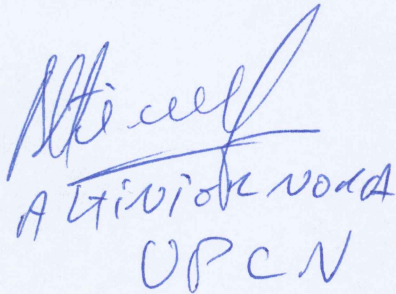 ALTINIOR NORA
UPCN